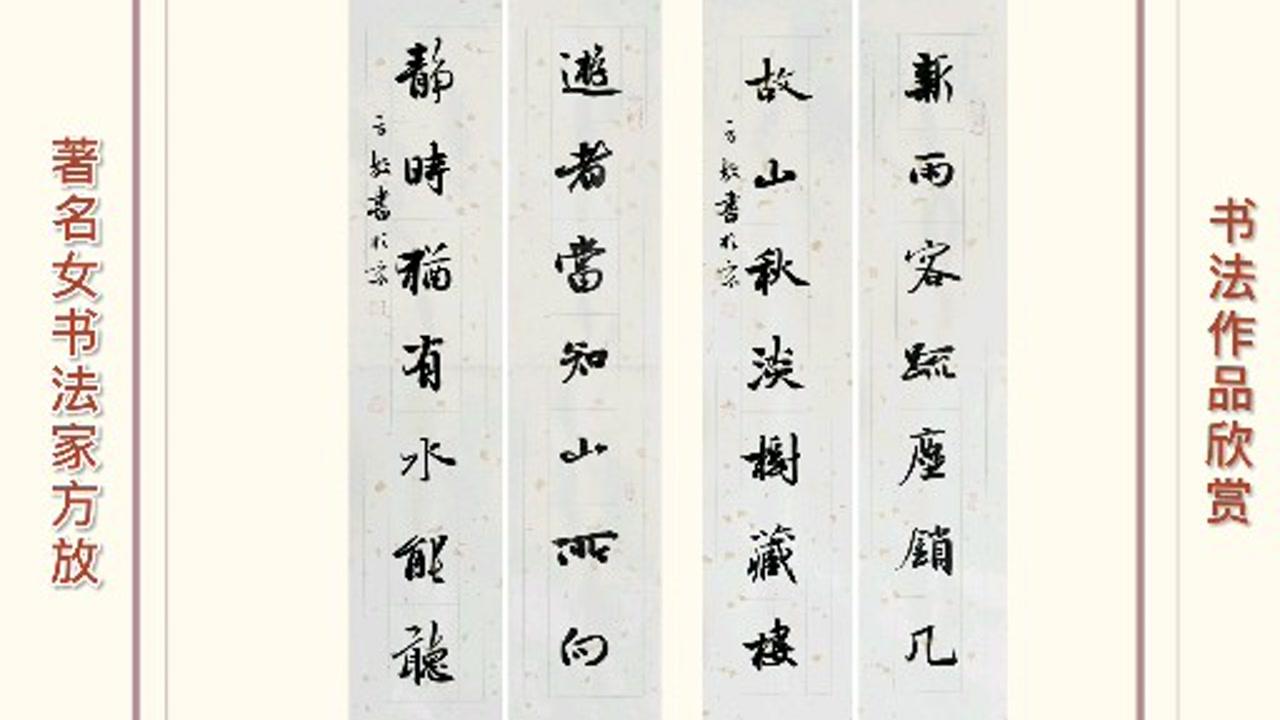 书法作品欣赏
新雨客疏塵鎖几
故山秋淡樹藏樓
方放書於京
遊者當知山所向
静時猶有水能聽
方放書於京
著名女书法家方放